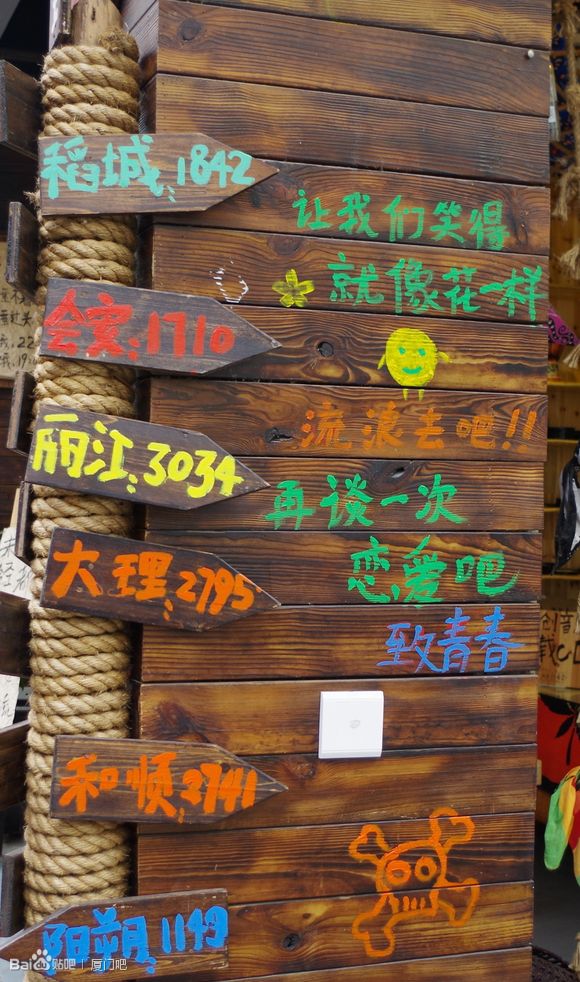 稻城:1842
让我们笑得
就像花一样
会安:1710
流浪去吧!!
丽江:3034
再谈一次
恋爱吧
大理:2795
致青春
和顺:2741
阳朔:1149
Bai贴吧|厦门吧